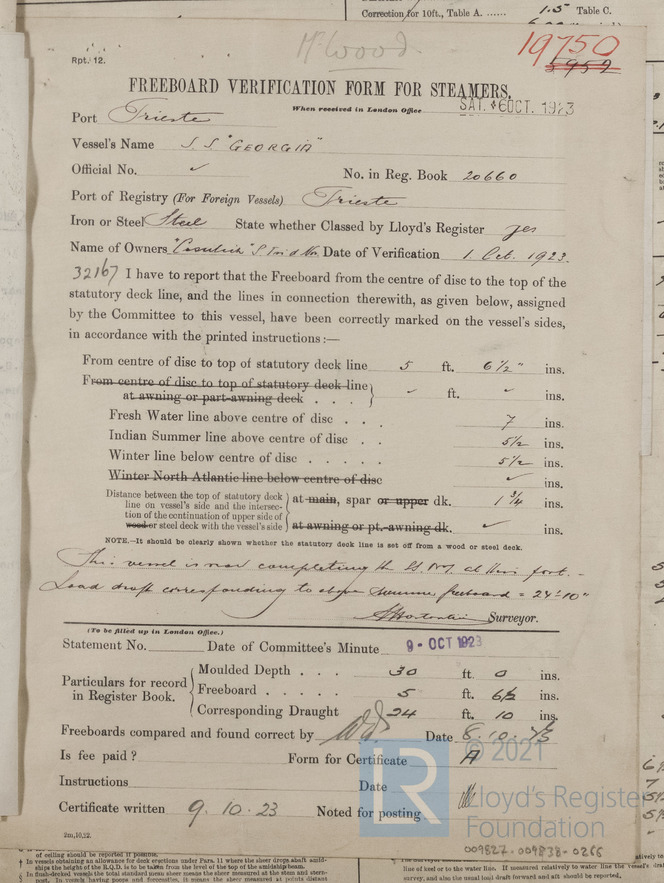 Correction for 10ft., Table A. ...... 1.5 Table C.
Mr Wood
19750
5959
Rpt. 12.
FREEBOARD VERIFICATION FORM FOR STEAMERS.
When received in London Office SAT. 6 OCT. 1923
Port Trieste
Vessel's Name S.S. "GEORGIA"
Official No. ✓ No. in Reg. Book 20660
Port of Registry (For Foreign Vessels) Trieste
Iron or Steel Steel State whether Classed by Lloyd's Register yes
Name of Owners "Cosulich" Date of Verification 1 Oct. 1923.
32167 I have to report that the Freeboard from the centre of disc to the top of the
statutory deck line, and the lines in connection therewith, as given below, assigned
by the Committee to this vessel, have been correctly marked on the vessel's sides,
in accordance with the printed instructions:—
From centre of disc to top of statutory deck line 5 ft. 6 ½" ins.
From centre of disc to top of statutory deck line
at awning or part-awning deck . . . ✓ ft. ✓ ins.
Fresh Water line above centre of disc . . . 7 ins.
Indian Summer line above centre of disc . . 5½ ins.
Winter line below centre of disc . . . . . 5½ ins.
Winter North Atlantic line below centre of disc ✓ ins.
Distance between the top of statutory deck
line on vessel's side and the intersec-
tion of the continuation of upper side of
wood or steel deck with the vessel's side
at main, spar or upper dk. 1 ¾ ins.
at awning or pt.-awning dk. ✓ ins.
NOTE.—It should be clearly shown whether the statutory deck line is set off from a wood or steel deck.
This vessel is now completing the at this port. -
Load draft corresponding to above summer freeboard = 24'-10"
Surveyor.
(To be filled up in London Office.)
Statement No. Date of Committee's Minute 9 - OCT 1923
Particulars for record
in Register Book.
Moulded Depth . . . . 30 ft. 0 ins.
Freeboard . . . . . 5 ft. 6½ ins.
Corresponding Draught 24 ft. 10 ins.
Freeboards compared and found correct by Date 8.10.23
Is fee paid ? Form for Certificate A
Instructions Date
Certificate written 9.10.23 Noted for posting
2m,10,12.
LR
© 2021
Lloyd's Register
Foundation
009827-009838-0266
of ceiling should be reported if possible.